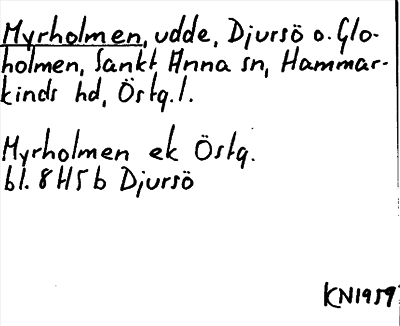 Myrholmen, udde, Djursö o. Glo-
holmen, Sankt Anna sn, Hammar-
kinds hd, Östg.l.
Myrholmen ek Östg.
bl. 8H5b Djursö
KN1959